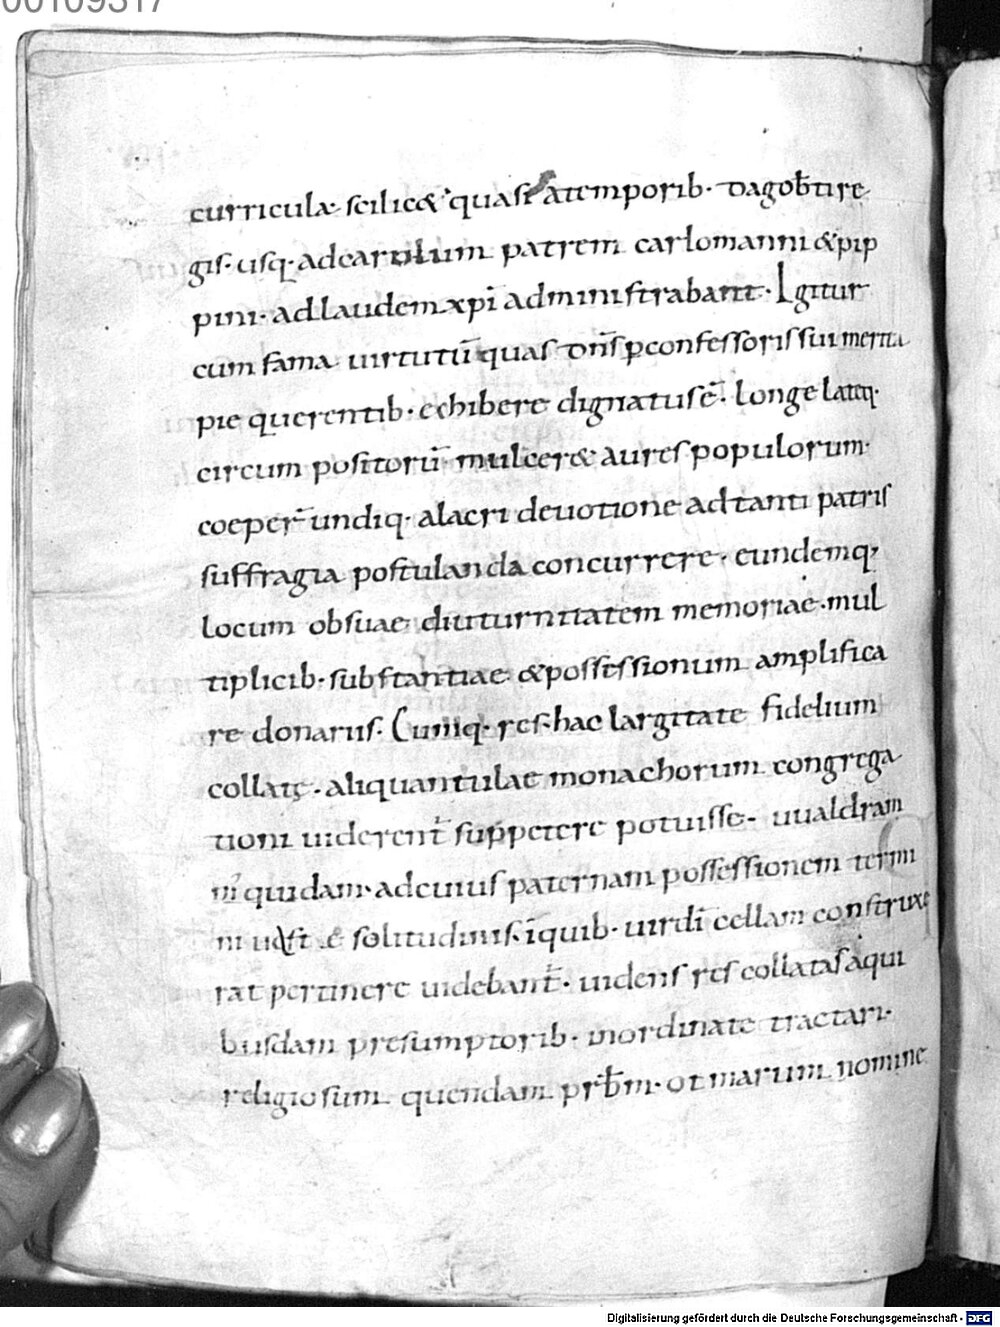 00109317
curricula scilic& quasi atemporib· dagob̄tire
gis· usq·adcarolum patrem carlomanni &pip
pini· adlaudem xpī administrabant· Igitur
cum fama uirtutū quas dn̄s ꝑconfessoris sui merita
pie querentib· exhibere dignatus ē· longe lateq·
circum positorū mulcer& aures populorum·
coeper̄ undiq· alacri deuotione ad tanti patris
suffragia postulanda concurrere· eundemq;
locum obsuae diuturnitatem memoriae· mul
tiplicib· substantiae &possessionum amplifica
re donariis· Cumq· res hac largitate fidelium
collatę· aliquantulae monachorum congrega
tioni uiderent̄ suppetere potuisse· uualdram
m̄ quidam· adcuius paternam possessionem termi
ni solitudinis· īquib· uir dī cellam construxe
rat pertinere uidebant̄· uidens res collatas aqui
busdam presumptorib· inordinate tractari·
religiosum quendam pr̄bm· otmarum nomine
Digitalisierung gefördert durch die Deutsche Forschungsgemeinschaft - DFG